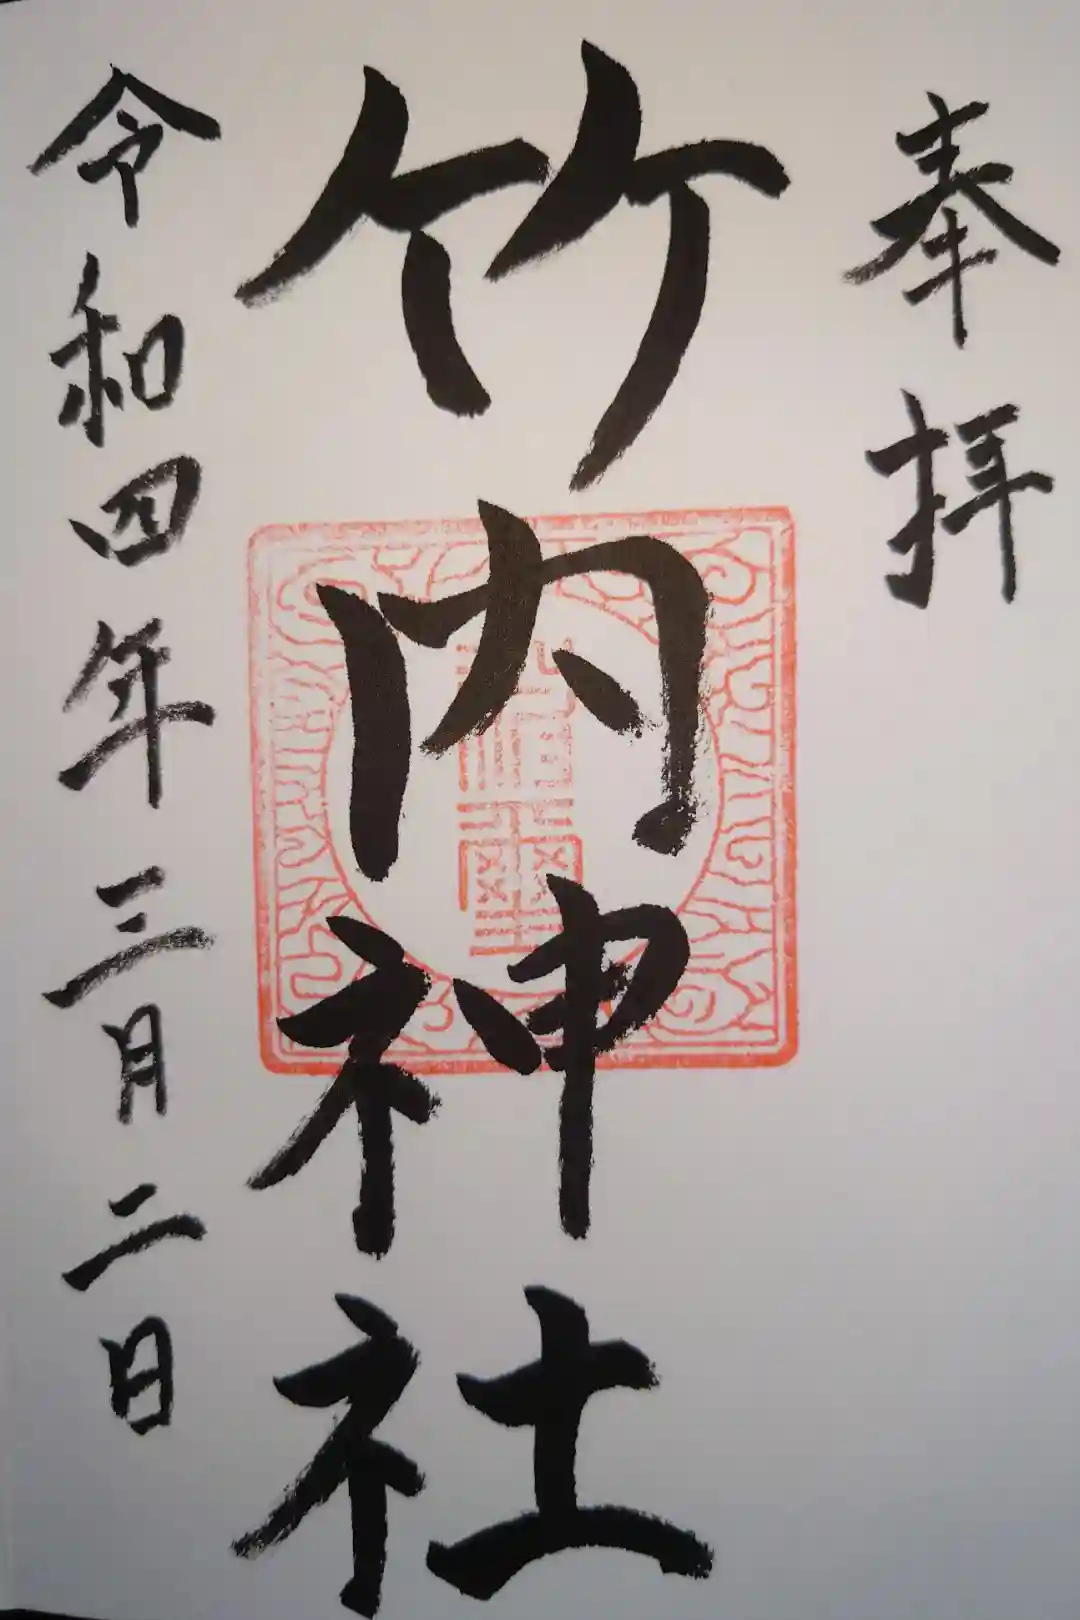 奉拝
竹内神社
令和四年三月二日